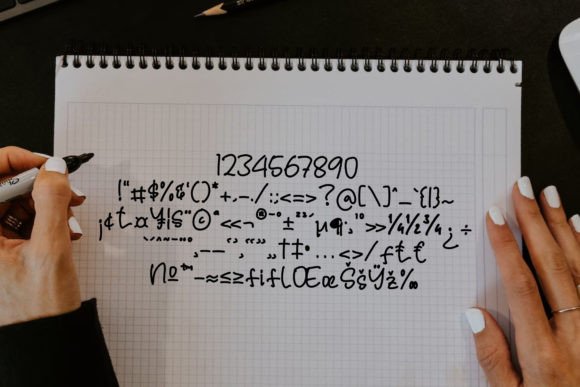 1234567890
!"#$%&'()*+,-./:;<=>?@[\]^_`{|}~
¡¢£¤¥¦§¨©ª«¬®¯°±²³´µ¶·¸¹º»¼½¾¿÷
–— ‘’‚“”„†‡•…‹›⁄ƒ₤€
№™−≈≤≥fiflŒœŠšŸž‰